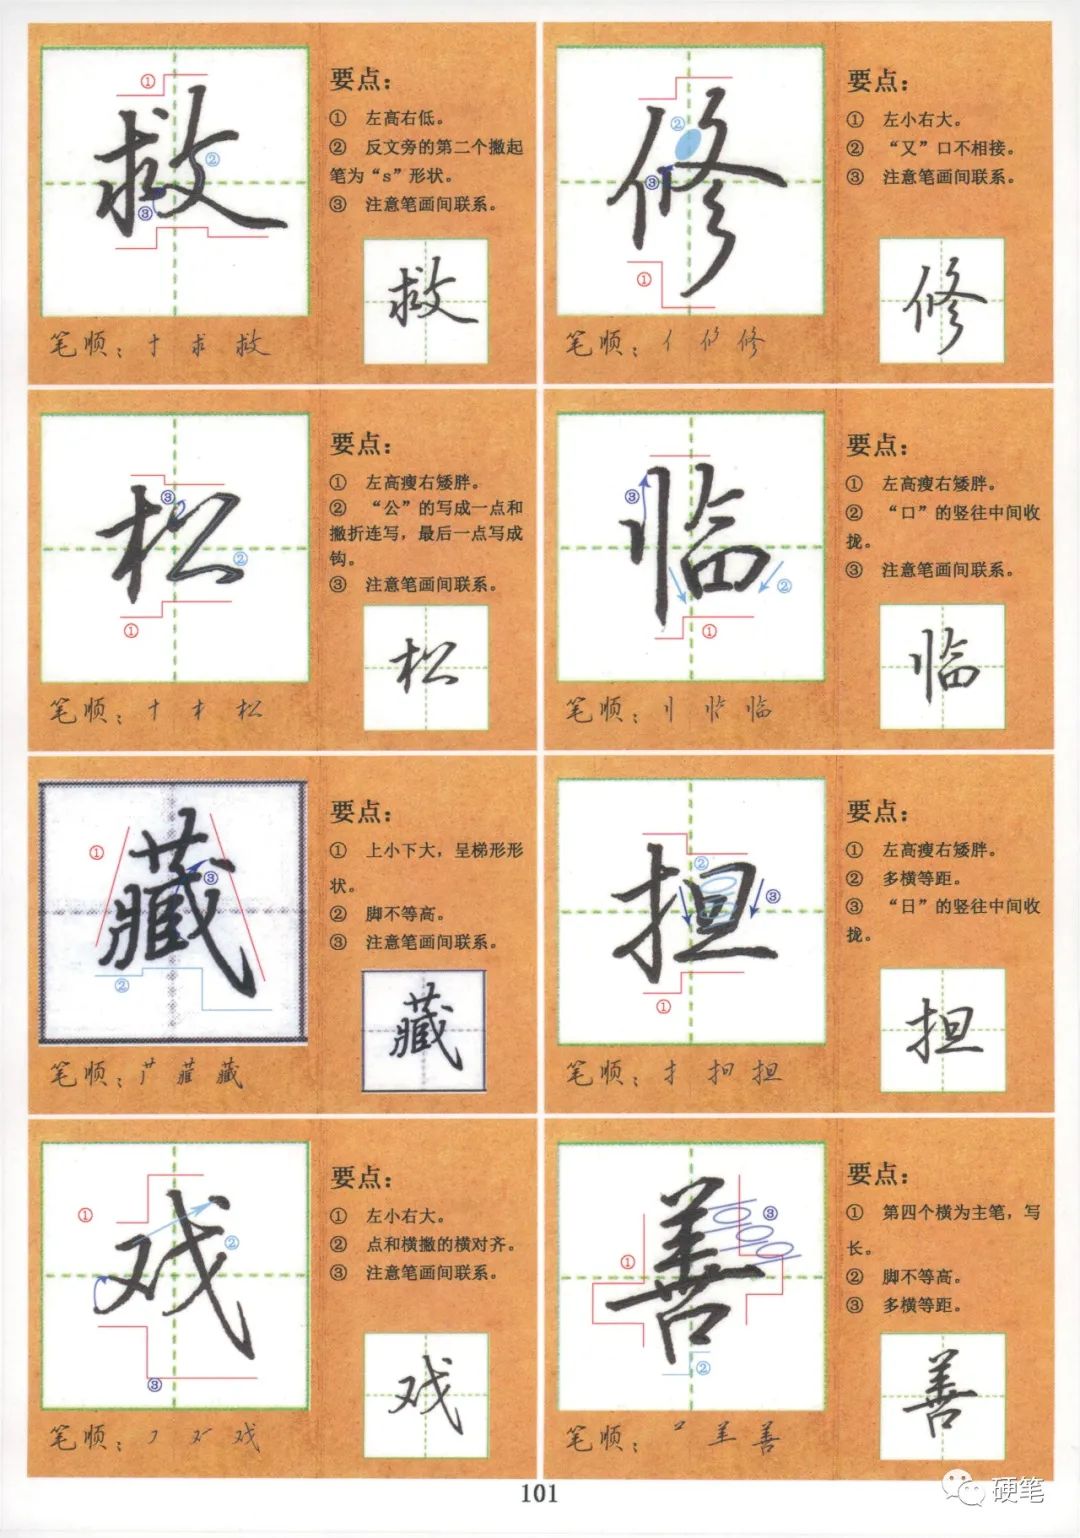 救
①
②
③
要点：
① 左高右低。
② 反文旁的第二个撇起
笔为“s”形状。
③ 注意笔画间联系。
救
笔顺：十 求 救
修
②
③
①
要点：
① 左小右大。
② “又”口不相接。
③ 注意笔画间联系。
修
笔顺：亻 修
松
③
②
①
要点：
① 左高瘦右矮胖。
② “公”的写成一点和
撇折连写，最后一点写成
钩。
③ 注意笔画间联系。
松
笔顺：十 木 松
临
③
②
①
要点：
① 左高瘦右矮胖。
② “口”的竖往中间收
拢。
③ 注意笔画间联系。
临
笔顺：临
藏
①
③
②
要点：
① 上小下大，呈梯形形
状。
② 脚不等高。
③ 注意笔画间联系。
藏
笔顺：藏
担
②
③
①
要点：
① 左高瘦右矮胖。
② 多横等距。
③ “日”的竖往中间收
拢。
担
笔顺：扌 扣 担
戏
①
②
③
要点：
① 左小右大。
② 点和横撇的横对齐。
③ 注意笔画间联系。
戏
笔顺：戏
善
③
①
②
要点：
① 第四个横为主笔，写
长。
② 脚不等高。
③ 多横等距。
善
笔顺：善
101
硬笔